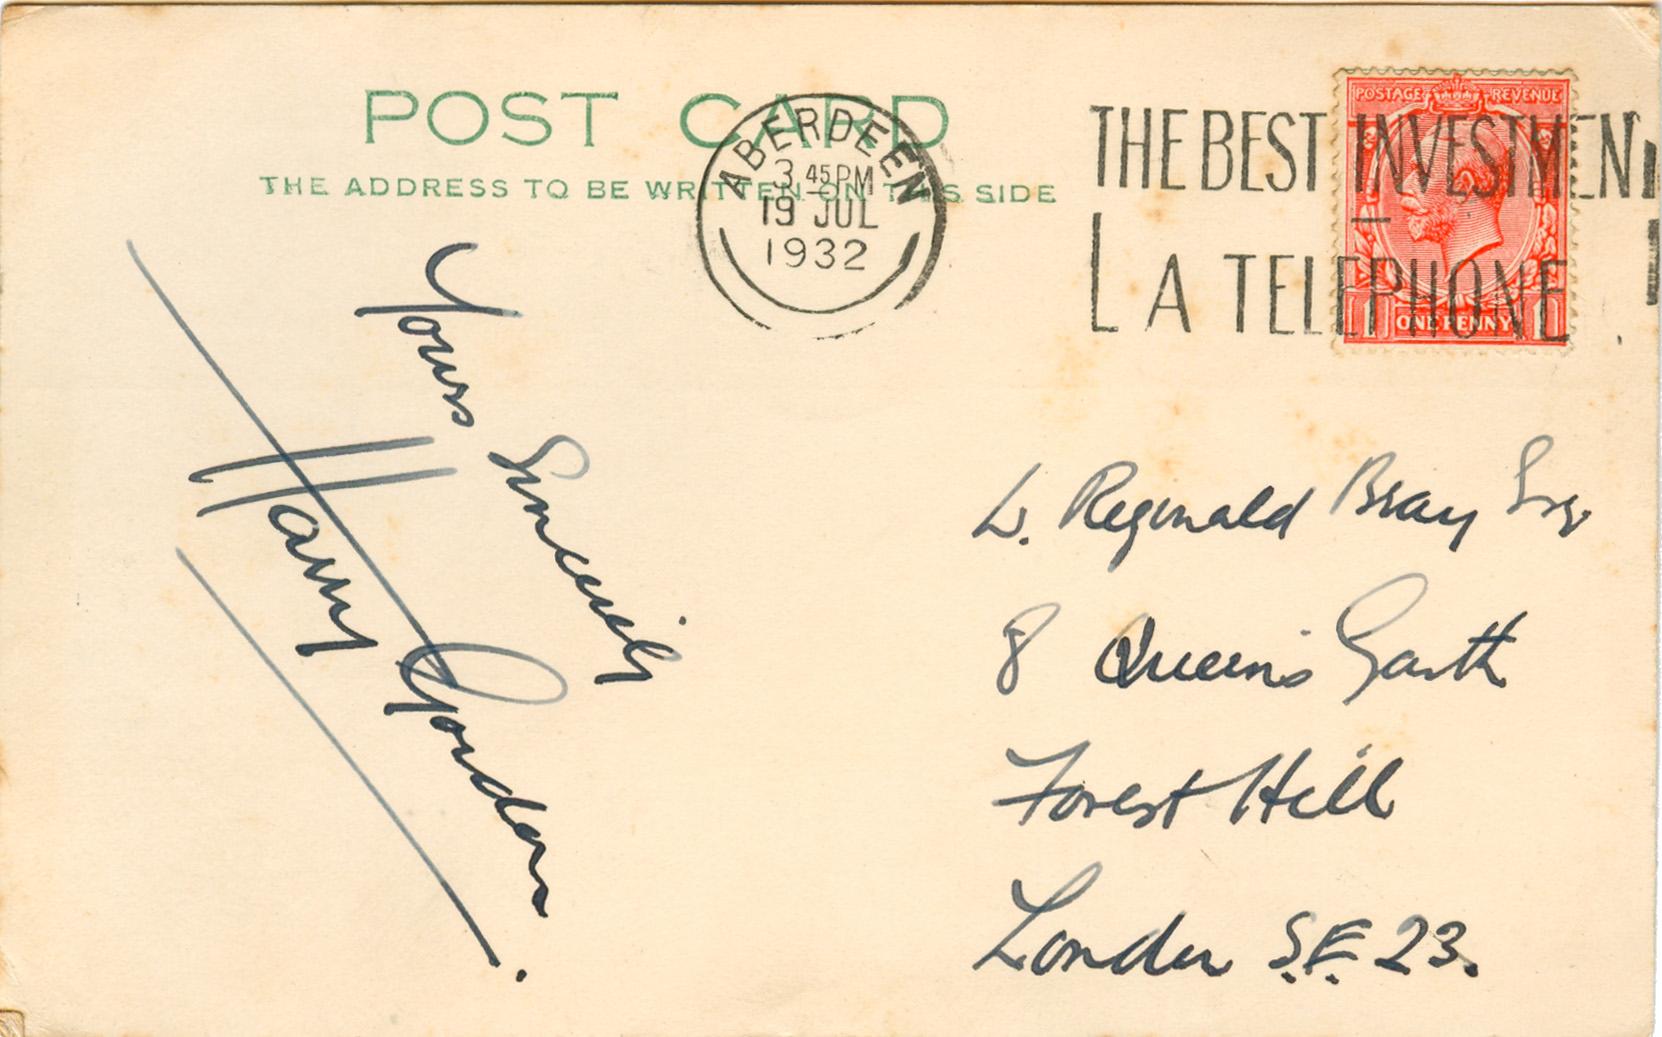 POST CARD
THE ADDRESS TO BE WRITTEN ON THIS SIDE
ABERDEEN
3.45PM
19 JUL
1932
THE BEST INVESTMEN
A TELEPHONE
POSTAGE REVENUE
1 ONE PENNY 1
Yours Sincerely
Harry Gordon.
W. Reginald Bray Esq
8 Queens Garth
Forest Hill
London S.E. 23.